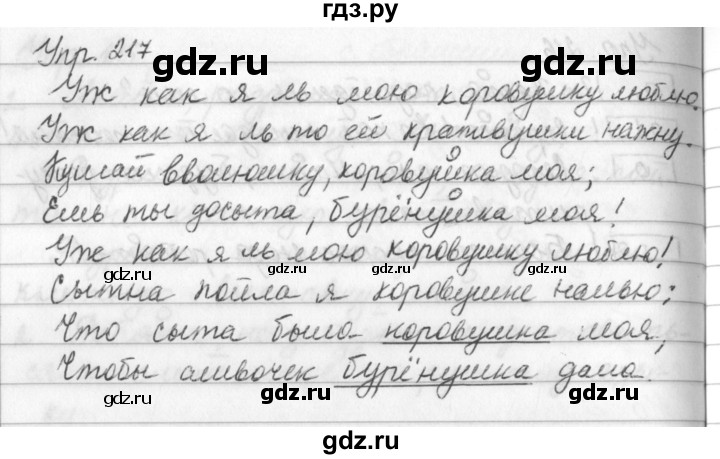 гдз.ру
Упр. 217
gdz.ru gdz.ru
Уж как я ль мою коровушку люблю.
Уж как я ль то ей крапивушки нажну.
gdz.ru gdz.ru
Кушай вволюшку, коровушка моя;
Ешь ты досыта, бурёнушка моя!
Уж как я ль мою коровушку люблю!
gdz.ru gdz.ru gdz.ru
Сытна пойла я коровушке налью;
Что сыта была коровушка моя,
gdz.ru gdz.ru
Чтобы сливочек бурёнушка дала.
gdz.ru